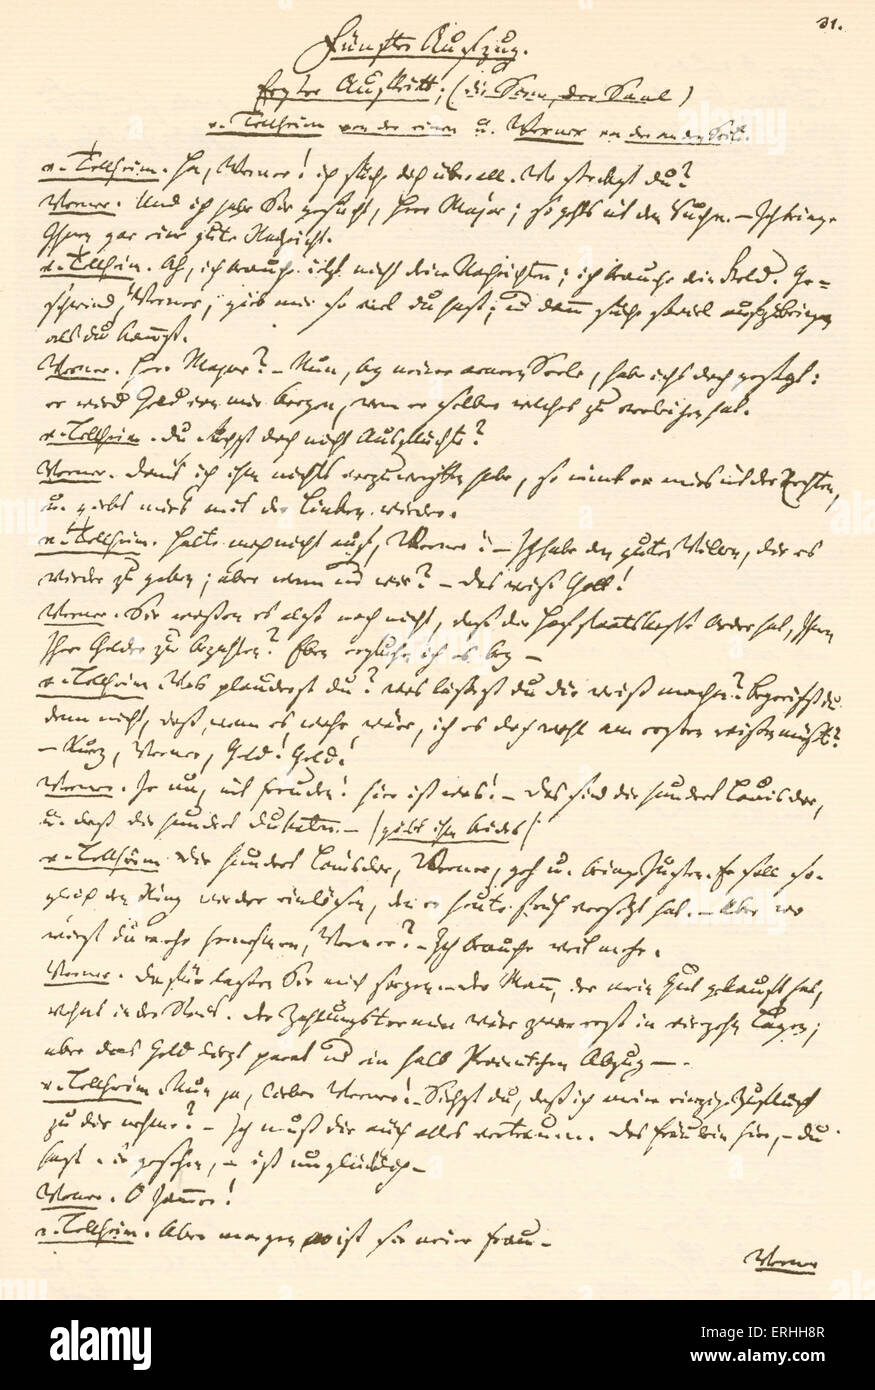 31.
Fünfter Aufzug.
Erster Auftritt; (die Scene, der Saal)
v. Tellheim von der einen u. Werner von der andern Seite.
v. Tellheim. Ha, Werner! ich suche dich überall. Wo steckst du?
Werner. Und ich habe Sie gesucht, Herr Major; so gehts mit dem Suchen. – Ich bringe
Ihnen gar eine gute Nachricht.
v. Tellheim. Ah, ich brauche itzt nicht deine Nachrichten; ich brauche dein Geld. Ge=
schwind, Werner, gieb mir so viel du hast; u dann suche so viel aufzubringen
als du kannst.
Werner. Herr Major? – Nun, bey meiner armen Seele, habe ichs doch gesagt:
er wird Geld von mir borgen, wenn er selber welches zu verleihen hat.
v. Tellheim. Du suchst doch nicht Ausflüchte?
Werner. Damit ich ihm nichts vorzuwerffen habe, so nimt er mirs mit der Rechten,
u. giebt mirs mit der Linken wieder.
v. Tellheim. Halte mich nicht auf, Werner! – Ich habe den guten Willen, dir es
wieder zu geben; aber wenn und wie? – Das weiß Gott!
Werner. Sie wissen es also noch nicht, daß die Hofstaatskasse Ordre hat, Ihnen
Ihre Gelder zu bezahlen? Eben erfuhr ich es bey –
v. Tellheim. Was plauderst du? was lässest du dir weiß machen? Begreifst du
denn nicht, daß, wenn es wahr wäre, ich es doch wohl am ersten wissen müßte?
– Kurz, Werner, Geld! Geld!
Werner. Je nu, mit Freuden! hier ist was! – Das sind die hundert Louisdor,
u. das die hundert Dukaten. – (giebt ihm beides)
v. Tellheim. Die hundert Louisdor, Werner, geh u. bringe Justen. Er soll so-
gleich den Ring wieder einlösen, den er heute früh versetzt hat. – Aber wo
wirst du mehr hernehmen, Werner? – Ich brauche weit mehr.
Werner. Dafür lassen Sie mich sorgen. – Der Mann, der mein Gut gekauft hat,
wohnt in der Stadt. Der Zahlungstermin wäre zwar erst in vierzehn Tagen;
aber das Geld liegt parat und ein halb Procentchen Abzug –.
v. Tellheim. Nun ja, lieber Werner! – Siehst du, daß ich meine einzige Zuflucht
zu dir nehme? – Ich muß dir auch alles vertrauen. Das Fräulein hier, – du
hast sie gesehen, – ist unglücklich –
Werner. O Jammer!
v. Tellheim. Aber morgen ist sie meine Frau –
Werner
alamy
Image ID: ERHH8R
www.alamy.com